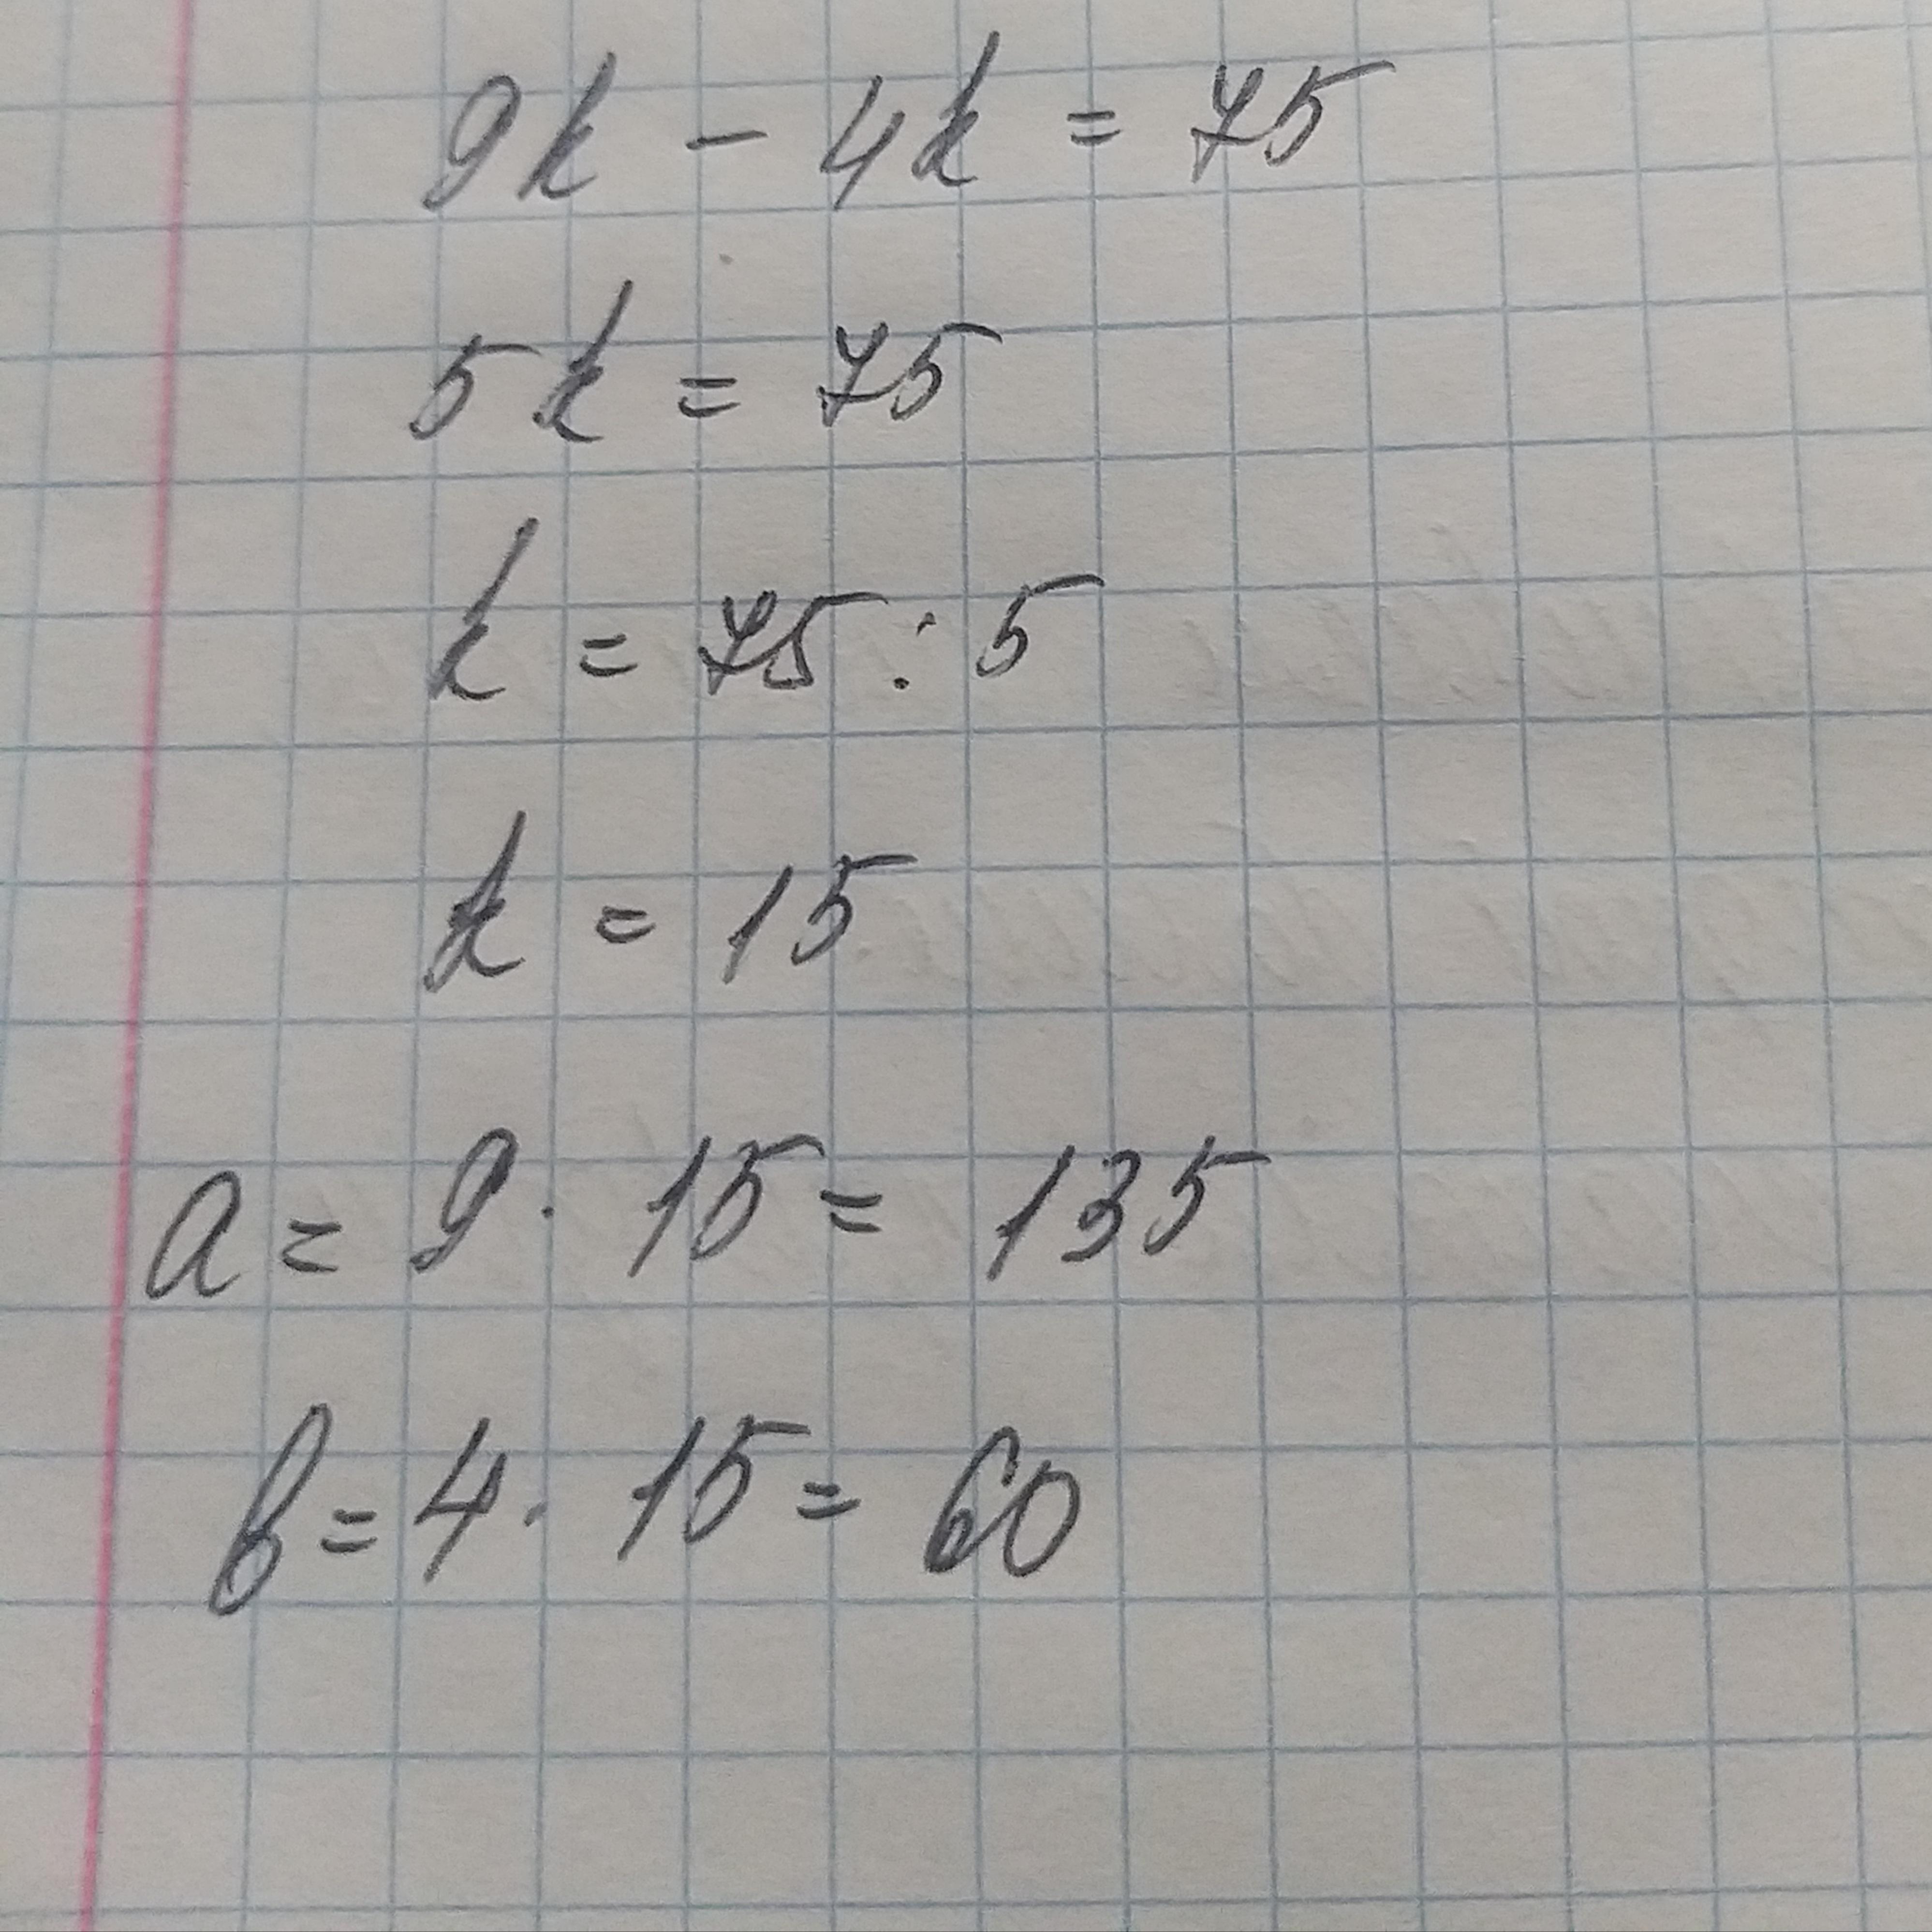 9k - 4k = 75
5k = 75
k = 75 : 5
k = 15
a = 9 · 15 = 135
b = 4 · 15 = 60